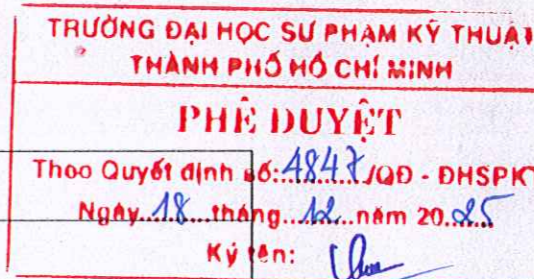 TRƯỜNG ĐẠI HỌC SƯ PHẠM KỸ THUẬT
THÀNH PHỐ HỒ CHÍ MINH
PHÊ DUYỆT
Theo Quyết định số: 4847 /QĐ - ĐHSPKT
Ngày 18 tháng 12 năm 2025
Ký tên: